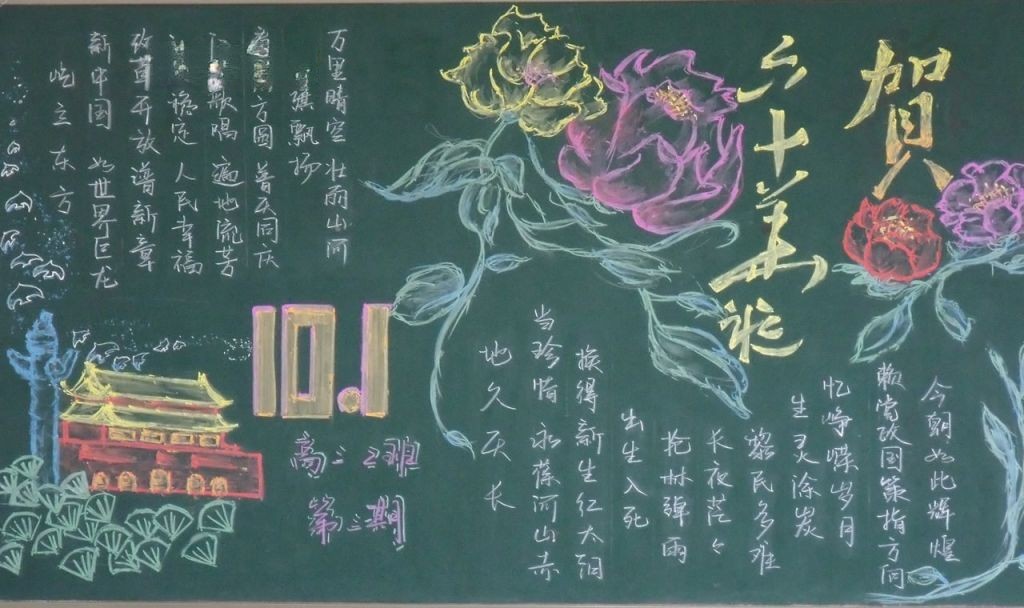 賀
六十华诞
今朝如此辉煌
赖党改国策指方向
忆峥嵘岁月
生灵涂炭
黎民多难
长夜茫々
枪林弹雨
出生入死
族得新生红太阳
当珍惜永葆河山赤
地久天长
万里晴空壮丽山河
旗飘扬
方圆普天同庆
歌唱遍地流芳
稳定人民幸福
改革开放谱新章
新中国如世界巨龙
屹立东方
10.1
高二2班
第三期